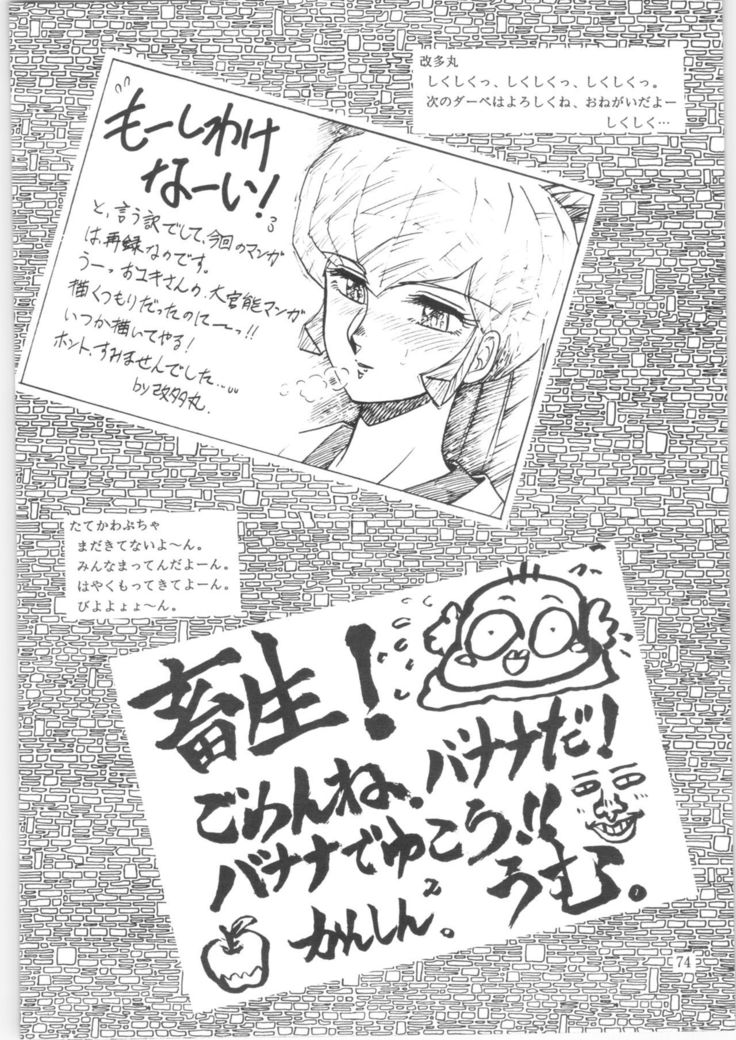 改多丸
しくしくっ、しくしくっ、しくしくっ。
次のダーベはよろしくね、おねがいだよー
しくしく…
もーしわけ
なーい!
と、言う訳でして、今回のマンガ
は再録なのです。
うーっおユキさんの、大官能マンガ
描くつもりだったのにーーっ!!
いつか描いてやる!
ホント、すみませんでした…
by改多丸.
たてかわぷちゃ
まだきてないよ〜ん。
みんなまってんだよーん。
はやくもってきてよーん。
びよよょょ〜ん。
畜生!
ごめんね。バナナだ!
バナナでゆこう!!
かんしん2。
うむ。
74